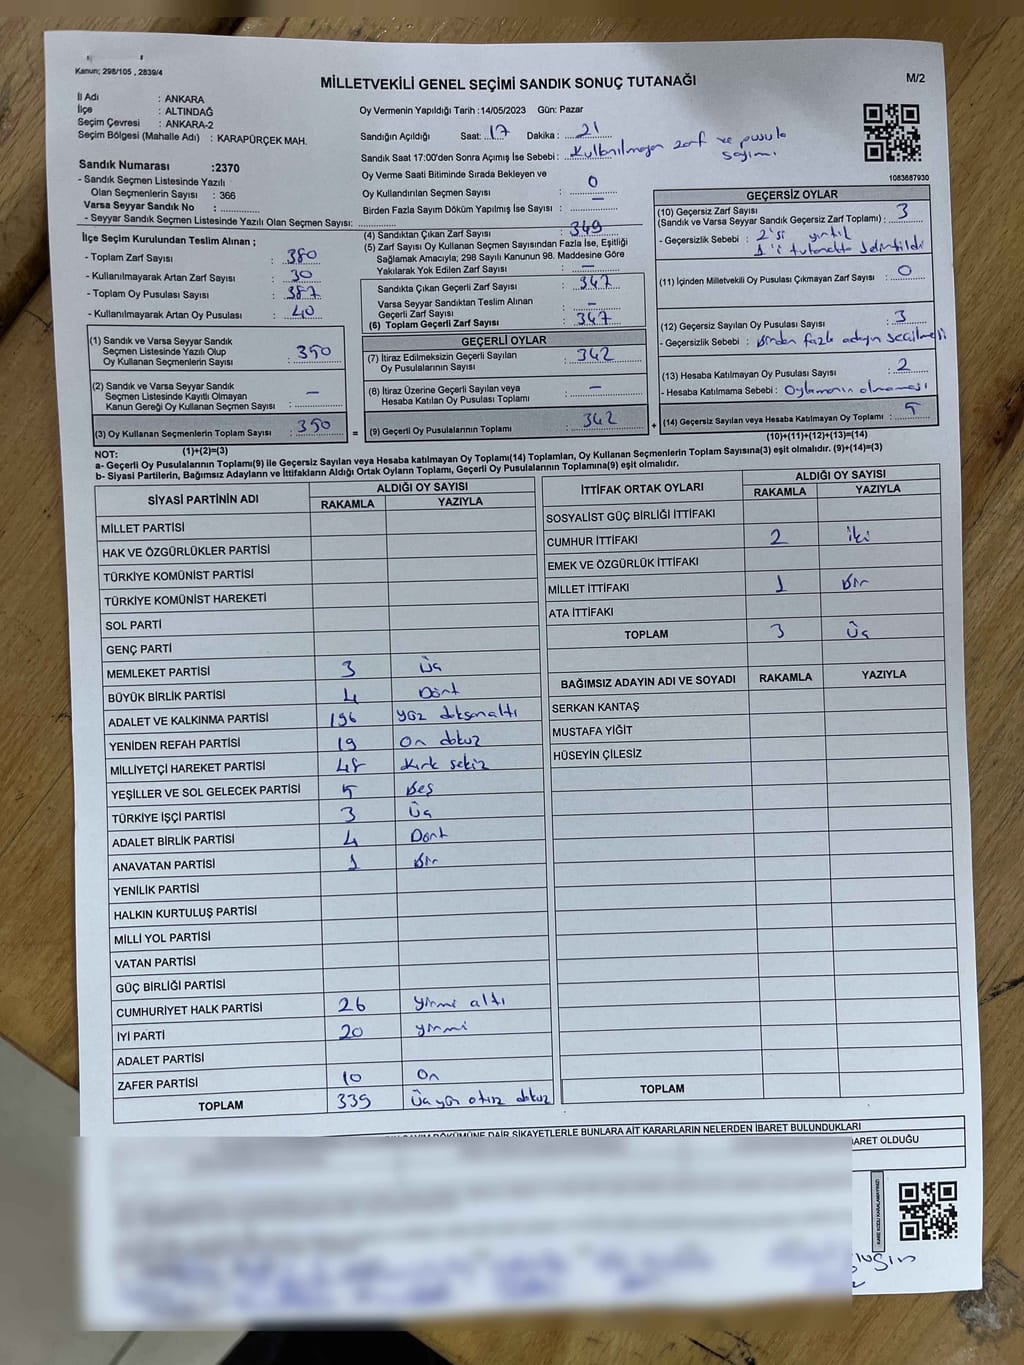 Kanun; 298/105 , 2839/4
MİLLETVEKİLİ GENEL SEÇİMİ SANDIK SONUÇ TUTANAĞI
M/2
İl Adı : ANKARA
İlçe : ALTINDAĞ
Seçim Çevresi : ANKARA-2
Seçim Bölgesi (Mahalle Adı) : KARAPÜRÇEK MAH.
Sandık Numarası :2370
- Sandık Seçmen Listesinde Yazılı
Olan Seçmenlerin Sayısı : 366
Varsa Seyyar Sandık No :
- Seyyar Sandık Seçmen Listesinde Yazılı Olan Seçmen Sayısı:
Oy Vermenin Yapıldığı Tarih :14/05/2023 Gün: Pazar
Sandığın Açıldığı Saat: 17 Dakika : 21
Sandık Saat 17:00'den Sonra Açımış İse Sebebi : Kullanılmayan zarf ve pusula
sayımı
Oy Verme Saati Bitiminde Sırada Bekleyen ve
Oy Kullandırılan Seçmen Sayısı : 0
Birden Fazla Sayım Döküm Yapılmış İse Sayısı : —
1083687930
İlçe Seçim Kurulundan Teslim Alınan ;
- Toplam Zarf Sayısı : 380
- Kullanılmayarak Artan Zarf Sayısı : 30
- Toplam Oy Pusulası Sayısı : 387
- Kullanılmayarak Artan Oy Pusulası : 40
(1) Sandık ve Varsa Seyyar Sandık
Seçmen Listesinde Yazılı Olup
Oy Kullanan Seçmenlerin Sayısı : 350
(2) Sandık ve Varsa Seyyar Sandık
Seçmen Listesinde Kayıtlı Olmayan
Kanun Gereği Oy Kullanan Seçmen Sayısı : —
(3) Oy Kullanan Seçmenlerin Toplam Sayısı : 350
(1)+(2)=(3)
(4) Sandıktan Çıkan Zarf Sayısı : 349
(5) Zarf Sayısı Oy Kullanan Seçmen Sayısından Fazla İse, Eşitliği
Sağlamak Amacıyla; 298 Sayılı Kanunun 98. Maddesine Göre
Yakılarak Yok Edilen Zarf Sayısı : —
Sandıkta Çıkan Geçerli Zarf Sayısı : 347
Varsa Seyyar Sandıktan Teslim Alınan
Geçerli Zarf Sayısı : —
(6) Toplam Geçerli Zarf Sayısı : 347
GEÇERLİ OYLAR
(7) İtiraz Edilmeksizin Geçerli Sayılan
Oy Pusulalarının Sayısı : 342
(8) İtiraz Üzerine Geçerli Sayılan veya
Hesaba Katılan Oy Pusulası Toplamı : —
= (9) Geçerli Oy Pusulalarının Toplamı : 342 +
GEÇERSİZ OYLAR
(10) Geçersiz Zarf Sayısı
(Sandık ve Varsa Seyyar Sandık Geçersiz Zarf Toplamı) : 3
- Geçersizlik Sebebi : 2'si yırtık
1'i tutanakta belirtildi
(11) İçinden Milletvekili Oy Pusulası Çıkmayan Zarf Sayısı : 0
(12) Geçersiz Sayılan Oy Pusulası Sayısı : 3
- Geçersizlik Sebebi : Birden fazla adayın seçilmesi
(13) Hesaba Katılmayan Oy Pusulası Sayısı : 2
- Hesaba Katılmama Sebebi : Oylamanın olmaması
(14) Geçersiz Sayılan veya Hesaba Katılmayan Oy Toplamı : 5
(10)+(11)+(12)+(13)=(14)
NOT:
a- Geçerli Oy Pusulalarının Toplamı(9) ile Geçersiz Sayılan veya Hesaba katılmayan Oy Toplamı(14) Toplamları, Oy Kullanan Seçmenlerin Toplam Sayısına(3) eşit olmalıdır. (9)+(14)=(3)
b- Siyasi Partilerin, Bağımsız Adayların ve İttifakların Aldığı Ortak Oyların Toplamı, Geçerli Oy Pusulalarının Toplamına(9) eşit olmalıdır.
SİYASİ PARTİNİN ADI ALDIĞI OY SAYISI
RAKAMLA YAZIYLA
MİLLET PARTİSİ
HAK VE ÖZGÜRLÜKLER PARTİSİ
TÜRKİYE KOMÜNİST PARTİSİ
TÜRKİYE KOMÜNİST HAREKETİ
SOL PARTİ
GENÇ PARTİ
MEMLEKET PARTİSİ 3 Üç
BÜYÜK BİRLİK PARTİSİ 4 Dört
ADALET VE KALKINMA PARTİSİ 196 yüz doksanaltı
YENİDEN REFAH PARTİSİ 19 On dokuz
MİLLİYETÇİ HAREKET PARTİSİ 48 Kırk sekiz
YEŞİLLER VE SOL GELECEK PARTİSİ 5 Beş
TÜRKİYE İŞÇİ PARTİSİ 3 Üç
ADALET BİRLİK PARTİSİ 4 Dört
ANAVATAN PARTİSİ 1 Bir
YENİLİK PARTİSİ
HALKIN KURTULUŞ PARTİSİ
MİLLİ YOL PARTİSİ
VATAN PARTİSİ
GÜÇ BİRLİĞİ PARTİSİ
CUMHURİYET HALK PARTİSİ 26 Yirmi altı
İYİ PARTİ 20 yirmi
ADALET PARTİSİ
ZAFER PARTİSİ 10 On
TOPLAM 339 Üçyüz otuz dokuz
İTTİFAK ORTAK OYLARI ALDIĞI OY SAYISI
RAKAMLA YAZIYLA
SOSYALİST GÜÇ BİRLİĞİ İTTİFAKI
CUMHUR İTTİFAKI 2 iki
EMEK VE ÖZGÜRLÜK İTTİFAKI
MİLLET İTTİFAKI 1 Bir
ATA İTTİFAKI
TOPLAM 3 Üç
BAĞIMSIZ ADAYIN ADI VE SOYADI RAKAMLA YAZIYLA
SERKAN KANTAŞ
MUSTAFA YİĞİT
HÜSEYİN ÇİLESİZ
TOPLAM
DÖKÜMÜNE DAİR ŞİKAYETLERLE BUNLARA AİT KARARLARIN NELERDEN İBARET BULUNDUKLARI
BARET OLDUĞU
KARE KODU KARALAMAYINIZ!